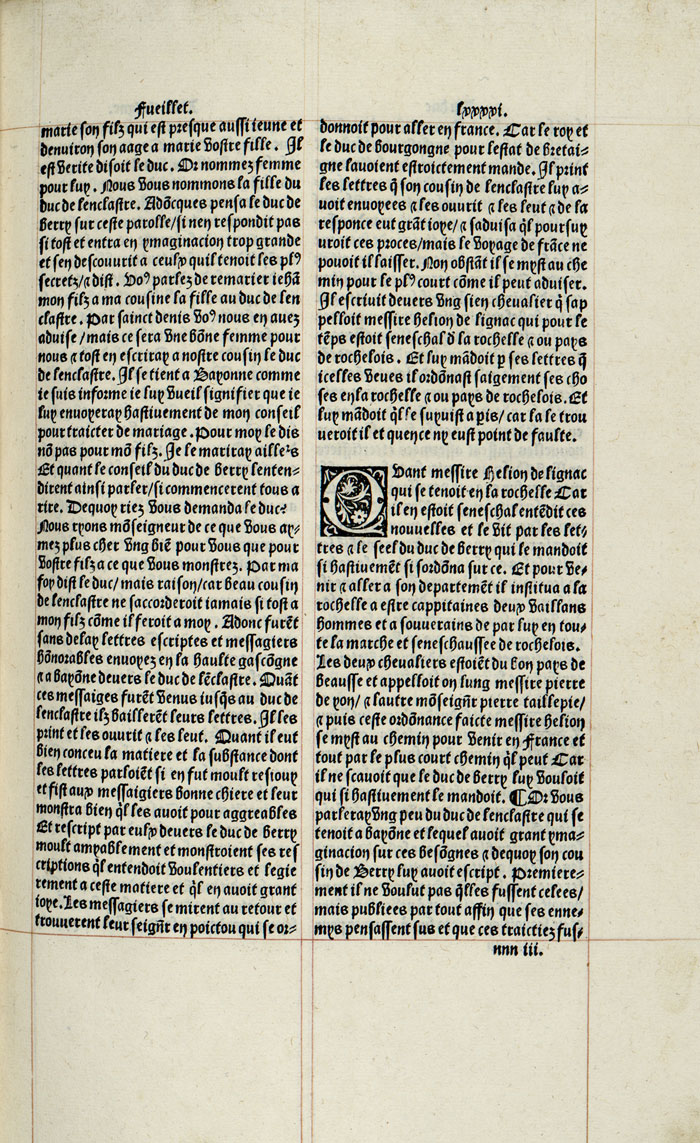 Fueillet.
marie son filz qui est presque aussi ieune et
denuiron son aage a marie vostre fille. Il
est verite disoit le duc. Or nommez femme
pour luy. Nous vous nommons la fille du
duc de lenclastre. Adõcques pensa le duc de
berry sur ceste parolle/si nen respondit pas
si tost et entra en ymaginacion trop grande
et sen descouurit a ceulx quil tenoit les plꝰ
secretz/⁊ dist. Voꝰ parlez de remarier iehã
mon filz a ma cousine la fille au duc de len
clastre. Par sainct denis voꝰ nous en auez
aduise/mais ce sera vne bõne femme pour
nous ⁊ tost en escriray a nostre cousin le duc
de lenclastre. Il se tient a Bayonne comme
ie suis informe ie luy vueil signifier que ie
luy enuoyeray hastiuement de mon conseil
pour traicter de mariage. Pour moy le dis
nõ pas pour mõ filz. Je le mariray ailleˢs
Et quant le conseil du duc de berry lenten-
dirent ainsi parler/si commencerent tous a
rire. Dequoy riez vous demanda le duc?
Nous ryons mõseigneur de ce que vous ay-
mez plus cher vng biẽ pour vous que pour
vostre filz a ce que vous monstrez. Par ma
foy dist le duc/mais raison/car beau cousin
de lenclastre ne saccorderoit iamais si tost a
mon filz cõme il feroit a moy. Adonc furẽt
sans delay lettres escriptes et messagiers
hõnorables enuoyez en la haulte gascõgne
⁊ a bayõne deuers le duc de lẽclastre. Quãt
ces messaiges furẽt venus iusq̃s au duc de
lenclastre ilz baillerẽt leurs lettres. Il les
print et les ouurit ⁊ les leut. Quant il eut
bien conceu la matiere et la substance dont
les lettres parloiẽt si en fut moult resiouy
et fist aux messaigiers bonne chiere et leur
monstra bien q̃l les auoit pour aggreables
Et rescript par eulx deuers le duc de berry
moult amyablement et monstroient ses res
criptions q̃l entendoit voulentiers et legie
rement a ceste matiere et q̃l en auoit grant
ioye. Les messagiers se mirent au retour et
trouuerent leur seignr̃ en poictou qui se or-
lxxxxi.
donnoit pour aller en france. Car le roy et
le duc de bourgongne pour lestat de bretai-
gne lauoient estroictement mande. Il print
les lettres q̃ son cousin de lenclastre luy a-
uoit enuoyees ⁊ les ouurit ⁊ les leut ⁊ de la
responce eut grãt ioye/⁊ saduisa q̃l poursuy
uroit ces proces/mais le voyage de frãce ne
pouoit il laisser. Non obstãt il se myst au che
min pour le plꝰ court cõme il peut aduiser.
Il escriuit deuers vng sien cheualier q̃ sap
pelloit messire helion de lignac qui pour le
tẽps estoit seneschal d̃ la rochelle ⁊ ou pays
de rochelois. Et luy mãdoit p̲ ses lettres q̃
icelles veues il ordõnast saigement ses cho
ses en la rochelle ⁊ ou pays de rochelois. Et
luy mãdoit q̃l le suyuist a p̲is/car la le trou
ueroit il et quence ny eust point de faulte.
Quant messire Helion de lignac
qui se tenoit en la rochelle Car
il en estoit seneschal entẽdit ces
nouuelles et le vit par les let-
tres ⁊ le seel du duc de berry qui le mandoit
si hastiuemẽt si sordõna sur ce. Et pour ve-
nir ⁊ aller a son departemẽt il institua a la
rochelle a estre cappitaines deux vaillans
hommes et a souuerains de par luy en tou-
te la marche et seneschaussee de rochelois.
Les deux cheualiers estoiẽt du bon pays de
beausse et appelloit on lung messire pierre
de yon/ ⁊ lautre mõseignr̃ pierre taillepie/
⁊ puis ceste ordõnance faicte messire helion
se myst au chemin pour venir en France et
tout par le plus court chemin q̃l peut Car
il ne scauoit que le duc de berry luy vouloit
qui si hastiuement le mandoit. ¶Or vous
parleray vng peu du duc de lenclastre qui se
tenoit a bayõne et lequel auoit grant yma-
ginacion sur ces besõgnes ⁊ dequoy son cou
sin de Berry luy auoit escript. Premiere-
ment il ne voulut pas q̃lles fussent celees/
mais publiees par tout affin que ses enne-
mys pensassent sus et que ces traictiez fus-
nnn iii.